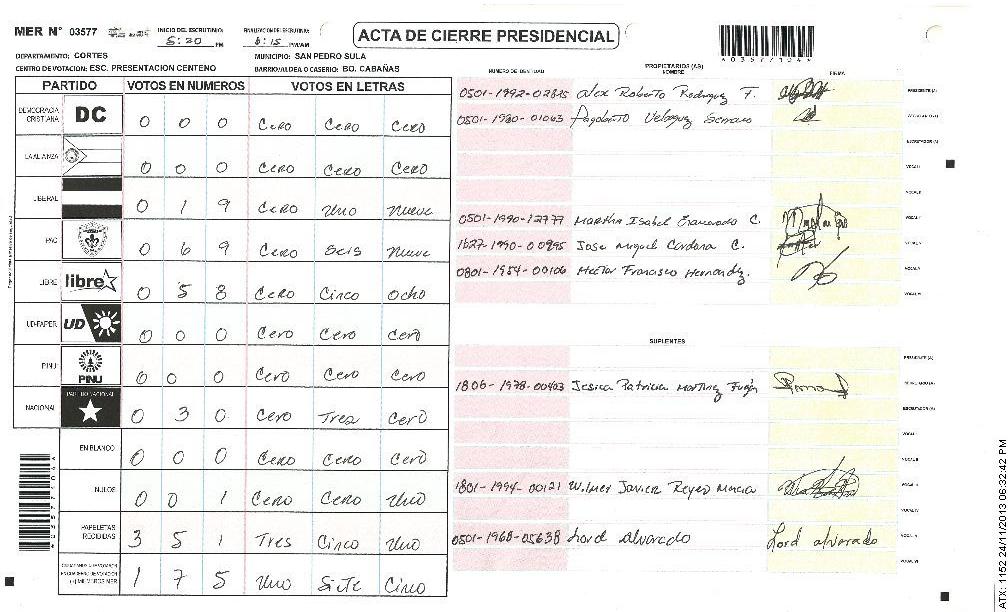 MER N° 03577
INICIO DEL ESCRUTINIO: 5:20 PM
FINALIZACION DEL ESCRUTINIO: 6:15 PM/AM
ACTA DE CIERRE PRESIDENCIAL
*03577104*
DEPARTAMENTO: CORTES
MUNICIPIO: SAN PEDRO SULA
CENTRO DE VOTACION: ESC. PRESENTACION CENTENO
BARRIO/ALDEA O CASERIO: BO. CABAÑAS
PARTIDO VOTOS EN NUMEROS VOTOS EN LETRAS
DEMOCRACIA CRISTIANA DC 0 0 0 Cero Cero Cero
LA ALIANZA 0 0 0 Cero Cero Cero
LIBERAL 0 1 9 Cero Uno Nueve
PAC 0 6 9 Cero Seis Nueve
LIBRE libre 0 5 8 Cero Cinco Ocho
UD-FAPER UD 0 0 0 Cero Cero Cero
PINU PINU 0 0 0 Cero Cero Cero
NACIONAL PARTIDO NACIONAL 0 3 0 Cero Tres Cero
EN BLANCO 0 0 0 Cero Cero Cero
NULOS 0 0 1 Cero Cero Uno
PAPELETAS RECIBIDAS 3 5 1 Tres Cinco Uno
(+) MIEMBROS MER 1 7 5 Uno Siete Cinco
NUMERO DE IDENTIDAD
PROPIETARIOS (AS)
NOMBRE
FIRMA
0501-1992-02825 Alex Roberto Rodriguez T. PRESIDENTE (A)
0501-1980-01063 Velasquez Serrano SECRETARIO (A)
ESCRUTADOR (A)
VOCAL I
VOCAL II
0501-1990-12777 Martha Isabel C.
1627-1990-00895 Jose Miguel Cardona C.
0801-1954-00106 Hector Francisco Hernandez.
VOCAL VI
SUPLENTES
PRESIDENTE (A)
1806-1978-00403 Jesica Patricia Martinez SECRETARIO (A)
ESCRUTADOR (A)
VOCAL I
VOCAL II
1801-1994-00121 Wilmer Javier Reyes
VOCAL IV
0501-1968-05638 Lord Alvarado Lord Alvarado
VOCAL VI
ATX: 1152 24/11/2013 06:32:42 PM